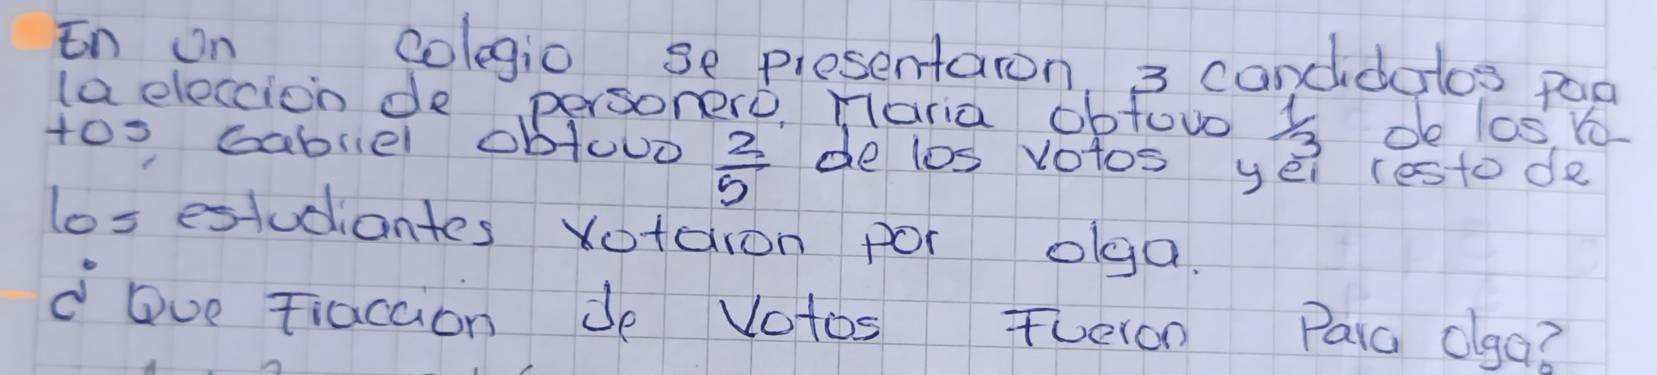 En un colegio se presentaron 3 candidatos paa
la eleccion de personero. Maria obtuvo 1/3 de los vo-
tos, Gabriel obtuvo 2/5 de los votos y el resto de
los estudiantes votaron por olga.
¿Que Fraccion de Votos Fueron Para Olga?